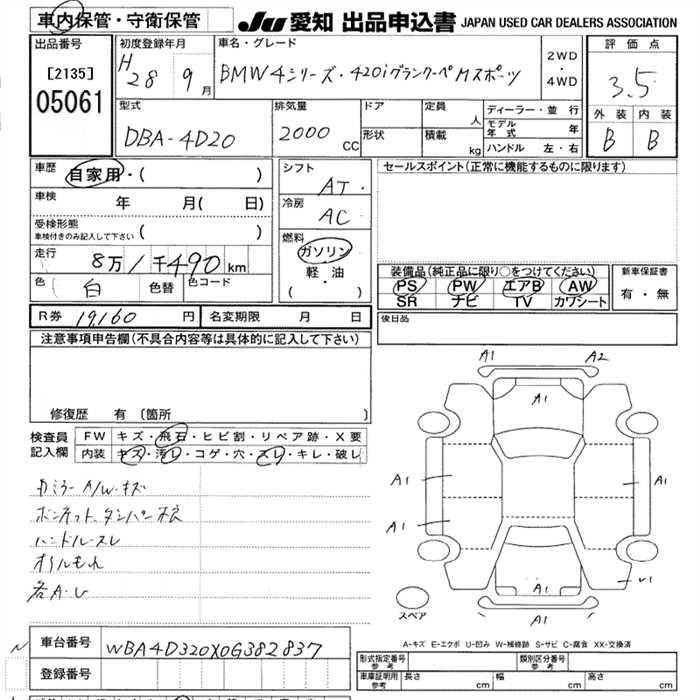 車内保管・守衛保管
JU 愛知 出品申込書 JAPAN USED CAR DEALERS ASSOCIATION
出品番号
[2135]
05061
初度登録年月
H 28 9 月
車名・グレード
BMW4シリーズ・420iグランクーペMスポーツ
2WD
・
4WD
評価点
3.5
外装 内装
B B
型式
DBA-4D20
排気量
2000 CC
ドア
形状
定員 人
積載 kg
ディーラー・並行
モデル年式 年
ハンドル 左・右
車歴
自家用・( )
車検 年 月( 日)
受検形態
車検付きのみ記入して下さい ( )
走行 8万1千490 km
色 白 色替 色コード
シフト
AT
冷房
AC
燃料
ガソリン
軽・油
( ・ )
セールスポイント(正常に機能するものに限ります)
装備品(純正品に限り○をつけてください)
PS PW エアB AW
SR ナビ TV カワシート
新車保証書
有・無
R券 19,160 円 名変期限 月 日
後日品
注意事項申告欄(不具合内容等は具体的に記入して下さい)
修復歴 有 〔箇所 〕
検査員
記入欄
FW キズ・飛石・ヒビ割・リペア跡・X要
内装 キズ・汚レ・コゲ・穴・スレ・キレ・破レ
カミラー A/W・キズ
ボンネット、
ハンドルスレ
オイルもれ
各A・U
A1 A2
A1
A1 A1
A1
A1
A1
スペア
A-キズ E-エクボ U-凹み W-補修跡 S-サビ C-腐食 XX-交換済
車台番号 WBA4D320X0G382837
登録番号
形式指定番号
参考
類別区分番号
参考
車庫証明用
参考
長さ cm 幅 cm 高さ cm